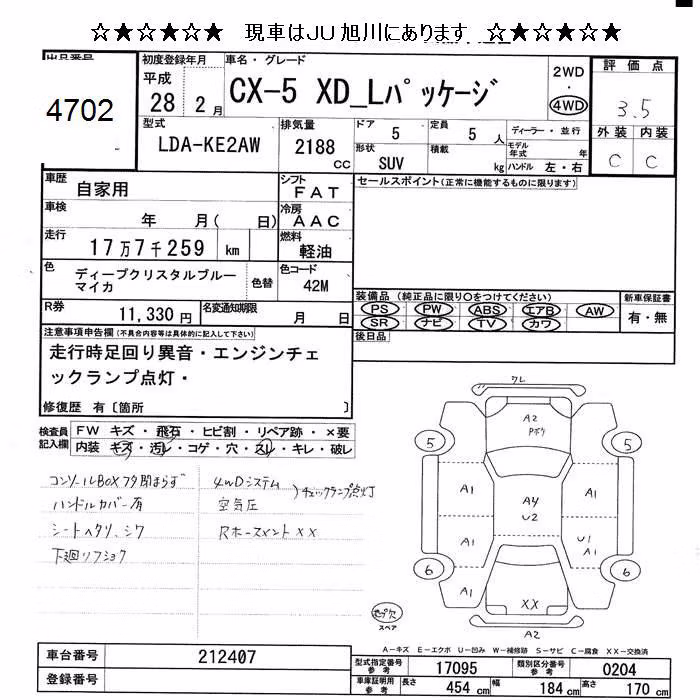 ☆★☆★☆★ 現車はJU旭川にあります ☆★☆★☆★
出品番号
4702
初度登録年月
平成
28 2 月
車名・グレード
CX-5 XD_Lパッケージ
2WD
・
4WD
評価点
3.5
外装 内装
C C
型式
LDA-KE2AW
排気量
2188
cc
ドア
5
定員
5 人
形状
SUV
積載
kg
ディーラー・並行
モデル
年式 年
ハンドル 左・右
車歴
自家用
シフト
FAT
車検
年 月( 日)
冷房
AAC
走行
17万7千259 km
燃料
軽油
色
ディープクリスタルブルー
マイカ
色替
色コード
42M
R券
11,330 円
名変通知期限
月 日
セールスポイント(正常に機能するものに限ります)
装備品(純正品に限り〇をつけてください)
PS PW ABS エアB AW
SR ナビ TV カワ
新車保証書
有・無
後日品
注意事項申告欄(不具合内容等は具体的に記入して下さい)
走行時足回り異音・エンジンチェ
ックランプ点灯・
修復歴 有〔箇所 〕
検査員
記入欄
FW キズ・飛石・ヒビ割・リペア跡・×要
内装 キズ・汚レ・コゲ・穴・スレ・キレ・破レ
コンソールBOXフタ閉まらず
ハンドルカバー有
シートヘタリ、シワ
下廻りフショク
4WDシステム
空気圧
)チェックランプ点灯
Rホースメント××
フレ
A2
Pボケ
5
5
A1
A1
A4
U2
A1
U1
A1
6
6
A1
XX
A2
スペア
A-キズ E-エクボ U-凹み W-補修跡 S-サビ C-腐食 XX-交換済
車台番号
212407
登録番号
型式指定番号
参考
17095
類別区分番号
参考
0204
車庫証明用
参考
長さ
454 cm
幅
184 cm
高さ
170 cm